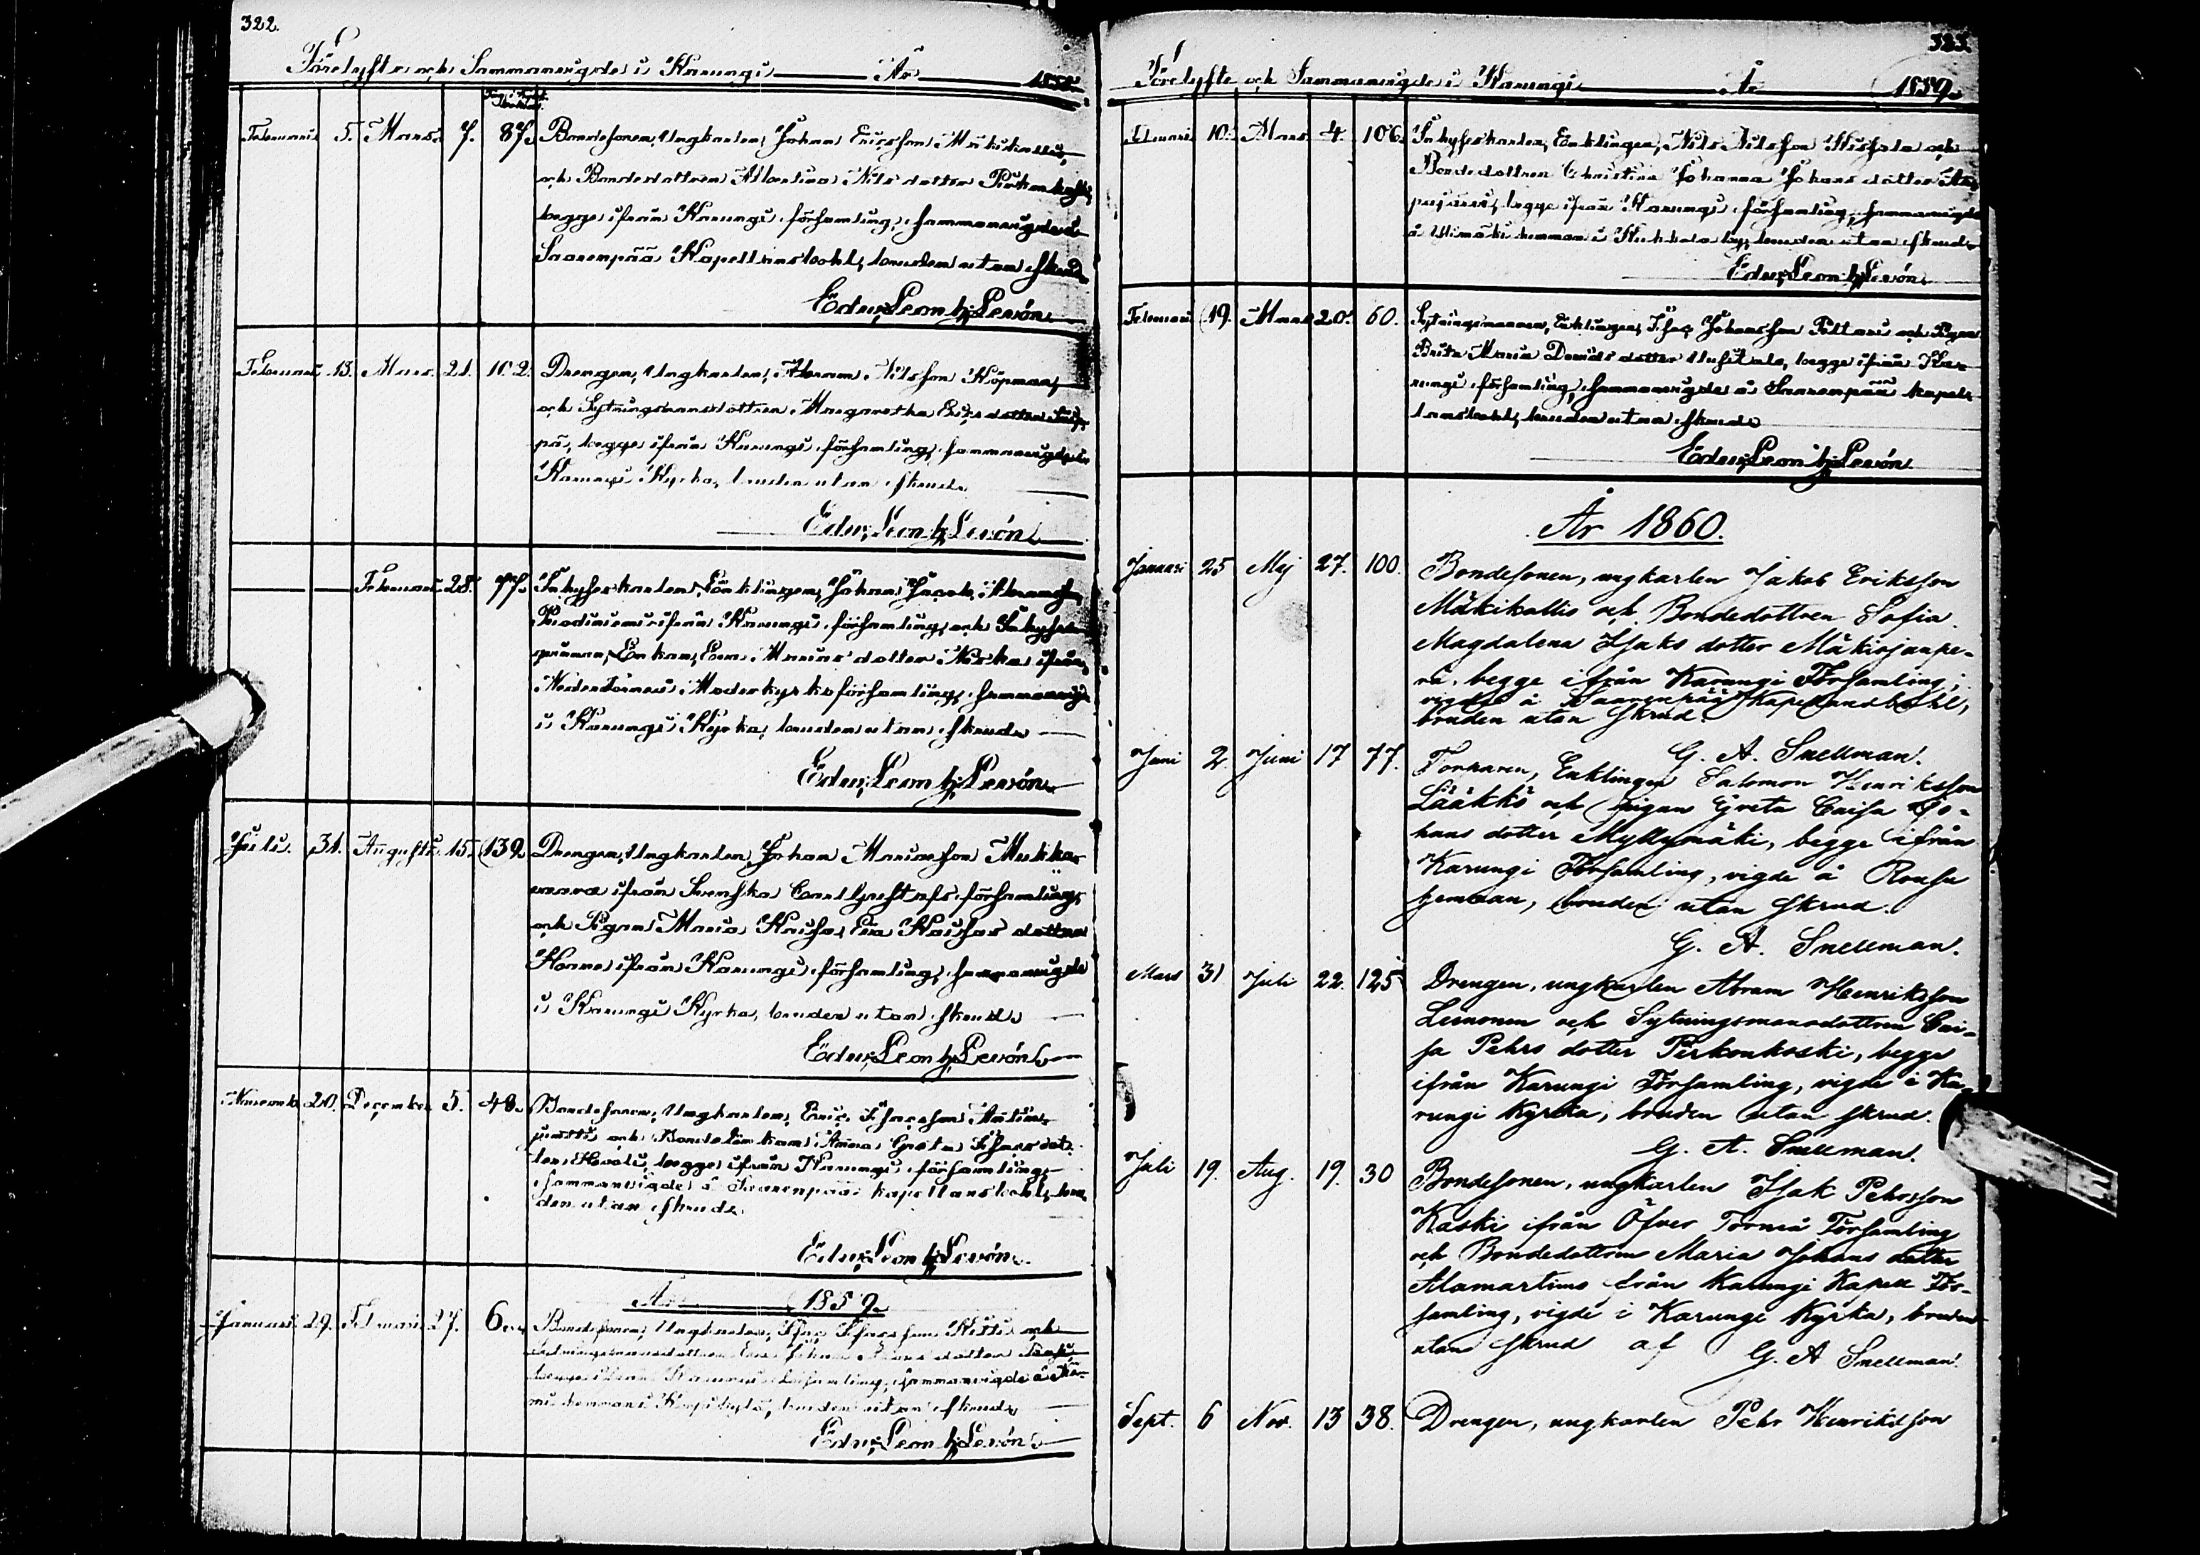 322.
Förelyste och Sammanvigde i Karungi År 1858.
Februari 5. Mars 7. 87. Bondesonen, Ungkarlen, Johan Ericsson Mäkikallio,
och Bondedottren Albertina Nils dotter
begge ifrån Karungi församling, sammanvigde å
Saarenpää Kapellansbohl, bruden utan skrud.
Edu: Leon h: Levón
Februari 13. Mars 21. 102. Drengen, Ungkarlen, Abram Nilsson Köpman,
och Sytningsmansdottren Margaretha Erics dotter
pä, begge ifrån Karungi församling, sammanvigde i
Karungi Kyrka, bruden utan skrud.
Edu: Leon h: Levón
Februari 28. 77. Inhyseskarlen, Enklingen, Johan Jacob Abramsson
ifrån Karungi församling, och Inhyses
qvinnan, Enkan, Eva Marias dotter Niska ifrån
Neder Torneå Moderkyrko församling, sammanvigde
i Karungi Kyrka, bruden utan skrud.
Edu: Leon h: Levón
Juli. 31. Augusti 15. 139. Drengen, Ungkarlen, Johan Mariasson Mukka-
vaara ifrån Svenska Carl Gustafs församling,
och Pigan Maria Kaisa Eva Kaisas dotter
ifrån Karungi församling, sammanvigde
i Karungi Kyrka, bruden utan skrud.
Edu: Leon h: Levón
November 20. December 5. 48. Bondesonen, Ungkarlen, Eric Isacsson Antin-
juntti och Bonde Enkan Anna Greta Isaks dot-
ter begge ifrån Karungi församling,
sammanvigde å Saarenpää kapellansbohl, bru
den utan skrud.
Edu: Leon h: Levón
År 1859.
Januari 29. Februari 27. 6. Bondesonen, Ungkarlen, Isac Isacsson Kitti och
Sytningsmansdottren Eva Johanna dotter
begge ifrån Karungi församling, sammanvigde å
hemman i Korpikylä, bruden utan skrud.
Edu: Leon h: Levón
323.
Förelyste och Sammanvigde i Karungi År 1859.
Februari 10. Mars 4. 106. Inhyseskarlen, Enklingen, Nils Nilsson och
Bondedottren Christina Johanna Johans dotter
begge ifrån Karungi församling, sammanvigde
å Ylimäki hemman i Kukkola by, bruden utan skrud.
Edu: Leon h: Levón
Februari 19. Mars 20. 60. Sytningsmannen, Enklingen, Isac Johansson och Pigan
Brita Maria Davids dotter Uusitalo, begge ifrån Ka-
rungi församling, sammanvigde å Saarenpää kapel-
lansbohl, bruden utan skrud.
Edu: Leon h: Levón
År 1860.
Januari 25 Maj 27. 100. Bondesonen, ungkarlen Jakob Eriksson
Mäkikallio och Bondedottren Sofia
Magdalena Isaks dotter Mäkisjanpe-
rä, begge ifrån Karungi Församling;
vigde å Saarenpää Kapellansbohl,
bruden utan skrud.
G. A. Snellman.
Juni 2. Juni 17 77. Torparen, Enklingen Salomon Henriksson
Lääkkö och pigan Greta Caisa Jo-
hans dotter Myllymäki, begge ifrån
Karungi Församling, vigde å Rousu
hemman, bruden utan skrud.
G. A. Snellman.
Mars 31 Juli 22. 125 Drengen, ungkarlen Abram Henriksson
Lesnonen och Sytningsmansdottren Cai-
sa Pehrs dotter Pirkonkoski, begge
ifrån Karungi Församling, vigde i Ka-
rungi Kyrka, bruden utan skrud.
G. A. Snellman.
Juli 19. Aug. 19. 30 Bondesonen, ungkarlen Isak Pehrsson
Kaski ifrån Öfver Torneå Församling
och Bondedottren Maria Johans dotter
Alamartimo från Karungi Kapell För-
samling, vigde i Karungi Kyrka, bruden
utan skrud af G. A Snellman.
Sept. 6 Nov. 13 38. Drengen, ungkarlen Pehr Henriksson